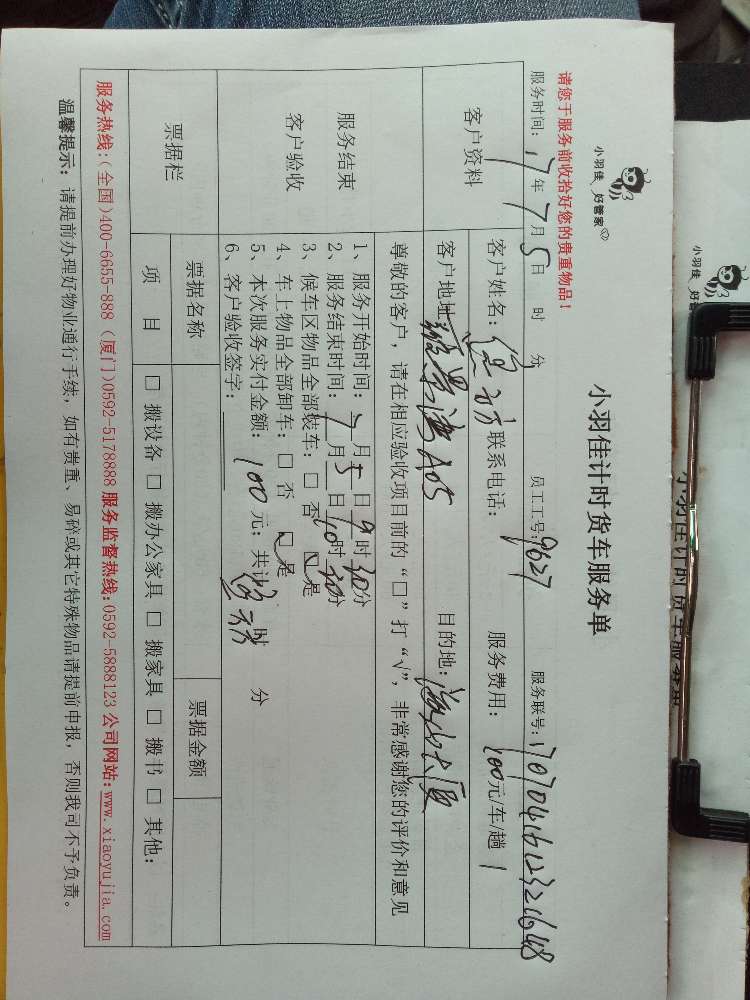 小羽佳 好管家
小羽佳计时货车服务单
小羽佳 好管家
小羽佳计时货车服务单
请您于服务前收拾好您的贵重物品！
服务时间：17年7月5日 时 分 员工工号：9627 服务联号：17070416123221648
客户资料
客户姓名： 联系电话： 服务费用：100元/车/趟 1
客户地址： A05 目的地：
尊敬的客户，请在相应验收项目前的“□”打“√”，非常感谢您的评价和意见
服务结束
客户验收
1、服务开始时间：7月5日9时30分
2、服务结束时间：7月5日10时30分
3、候车区物品全部装车：□ 否 ☑ 是
4、车上物品全部卸车：□ 否 ☑ 是
5、本次服务实付金额：100元；共计 时 分
6、客户验收签字：
票据栏
票据名称 票据金额
项 目 □ 搬设备 □ 搬办公家具 □ 搬家具 □ 搬书 □ 其他：
服务热线：（全国）400-6655-888（厦门）0592-5178888 服务监督热线：0592-5888123 公司网站：www.xiaoyujia.com
温馨提示：请提前办理好物业通行手续，如有贵重、易碎或其它特殊物品请提前申报，否则我司不予负责。